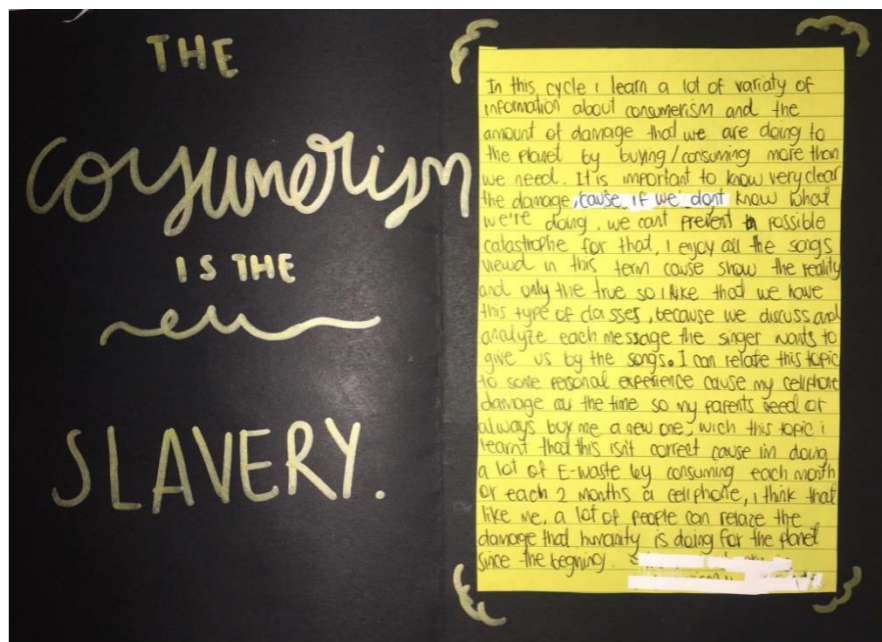 THE
Consumerism
IS THE
SLAVERY.
In this cycle i learn a lot of variaty of
information about consumerism and the
amount of damage that we are doing to
the planet by buying/consuming more than
we need. It is important to know very clear
the damage, cause if we dont know what
we're doing, we cant prevent a possible
catastrophe for that, I enjoy all the songs
viewd in this term cause show the reality
and only the true so i like that we have
this type of classes, because we discuss and
analyze each message the singer wants to
give us by the songs. I can relate this topic
to some personal experience cause my cellphone
damage all the time so my parents need or
always buy me a new one, wich this topic i
learnt that this isn't correct cause im doing
a lot of E-waste by consuming each month
or each 2 months a cellphone, i think that
like me, a lot of people can relaze the
damage that humanity is doing for the planet
since the begning.